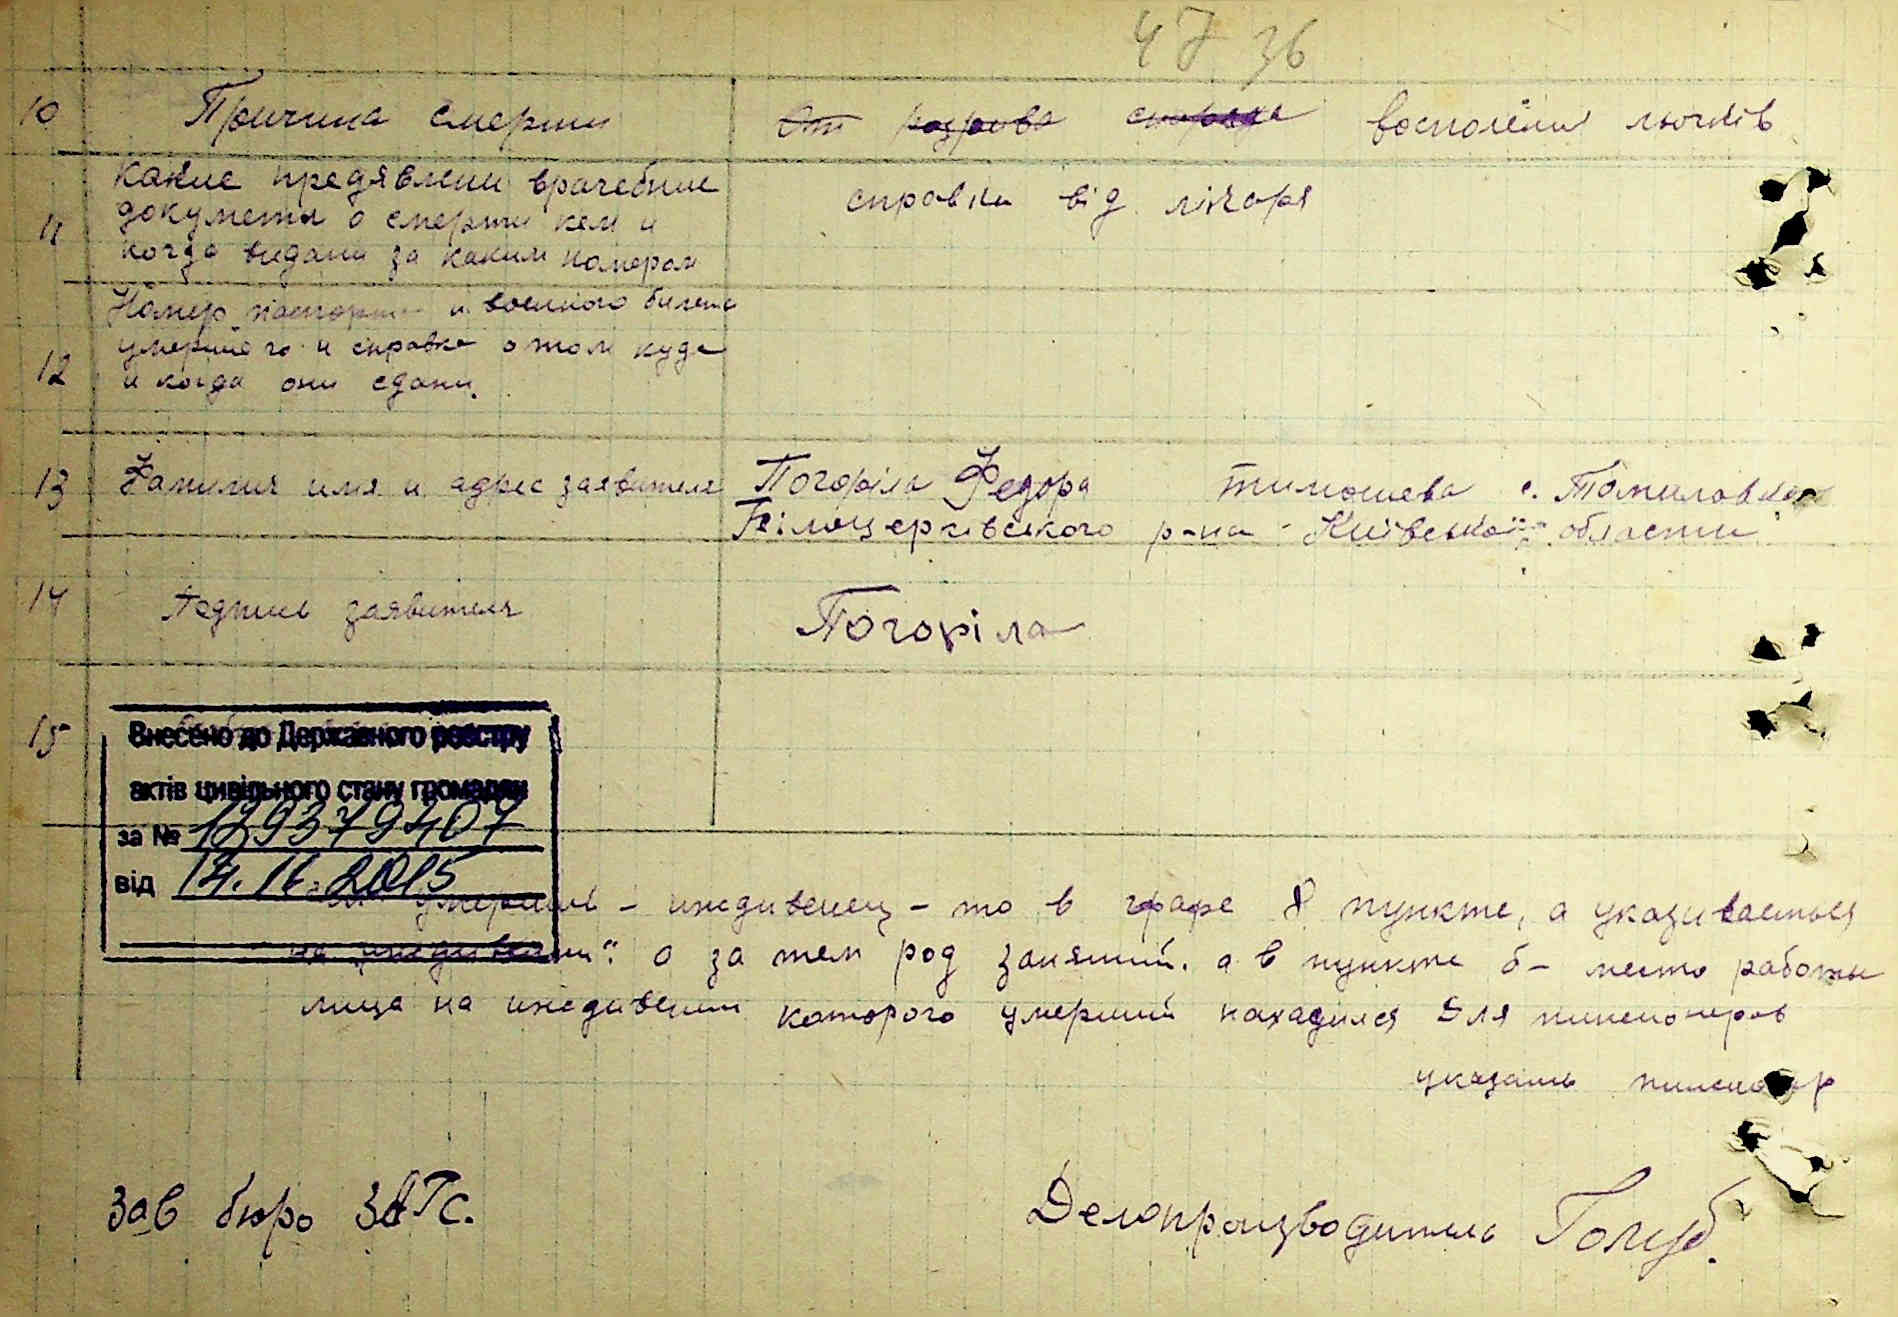 47 36
10 Причина смерти От розрива снаряда восполєния льогків
какие предявлени врачебние
11 документи о смерти кем и справка від лікаря
когда видани за каким номером
Номер паспорта и военного билета
12 умершего и справка о том куда
и когда они сдани.
13 Фамилия имя и адрес заявителя Погоріла Федора Тимошева с. Томиловка
Білоцерківського р-на Київської области
14 Подпись заявителя Погоріла
15
Внесено до Державного реєстру
актів цивільного стану громадян
за №
від
умерший - иждивенец - то в графе 8 пункте, а указивается
на "иждивении" а за тем род занятий. а в пункте 6 - место работи
лица на иждивении которого умерший находился Для пинсионеров
указать пинсионер
Зав бюро ЗАГС. Делопроизводитель Голуб.